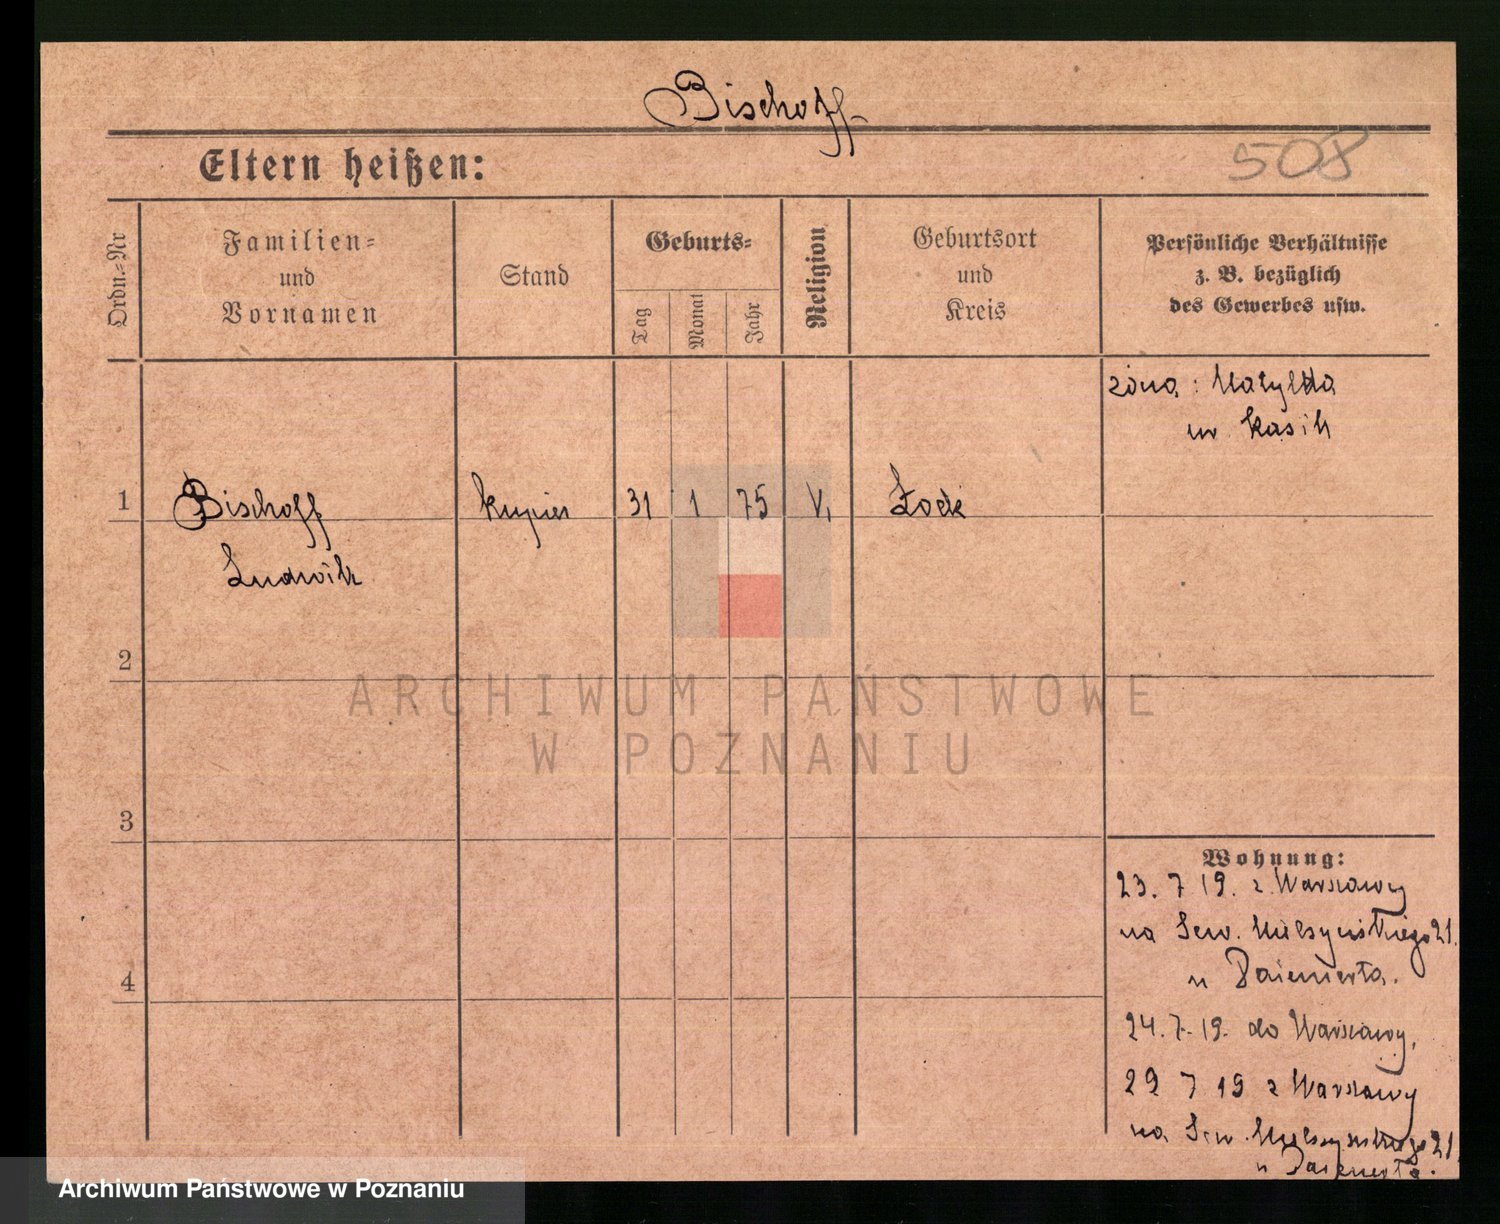 Bischoff
Eltern heißen:
508
Ordn.-Nr
Familien-
und
Vornamen
Stand
Geburts-
Tag
Monat
Jahr
Religion
Geburtsort
und
Kreis
Persönliche Verhältnisse
z. B. bezüglich
des Gewerbes usw.
żona: Matylda
ur.
1 Bischoff kupiec 31 1 75
Ludwik
2
3
4
Wohnung:
23. 7 19. z Warszawy
na Sew. Mielżyńskiego 21.
u
24. 7. 19. do Warszawy,
29 7 19 z Warszawy
na Sew. Mielżyńskiego 21.
u
ARCHIWUM PAŃSTWOWE
W POZNANIU
Archiwum Państwowe w Poznaniu